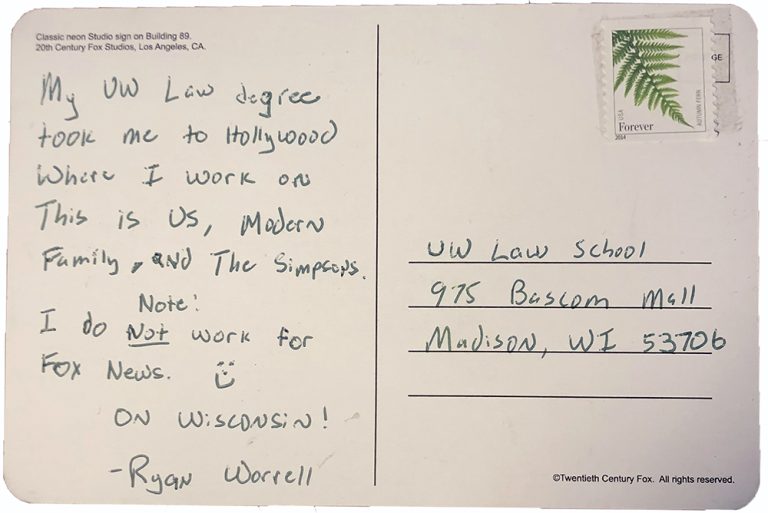 Classic neon Studio sign on Building 89.
20th Century Fox Studios, Los Angeles, CA.
My UW Law degree
took me to Hollywood
Where I work on
This is Us, Modern
Family, and The Simpsons.
Note!
I do Not work for
Fox News.
ON WISCONSIN!
-Ryan Worrell
GE
USA
Forever
AUTUMN FERN
2014
UW Law School
975 Bascom Mall
Madison, WI 53706
©Twentieth Century Fox. All rights reserved.